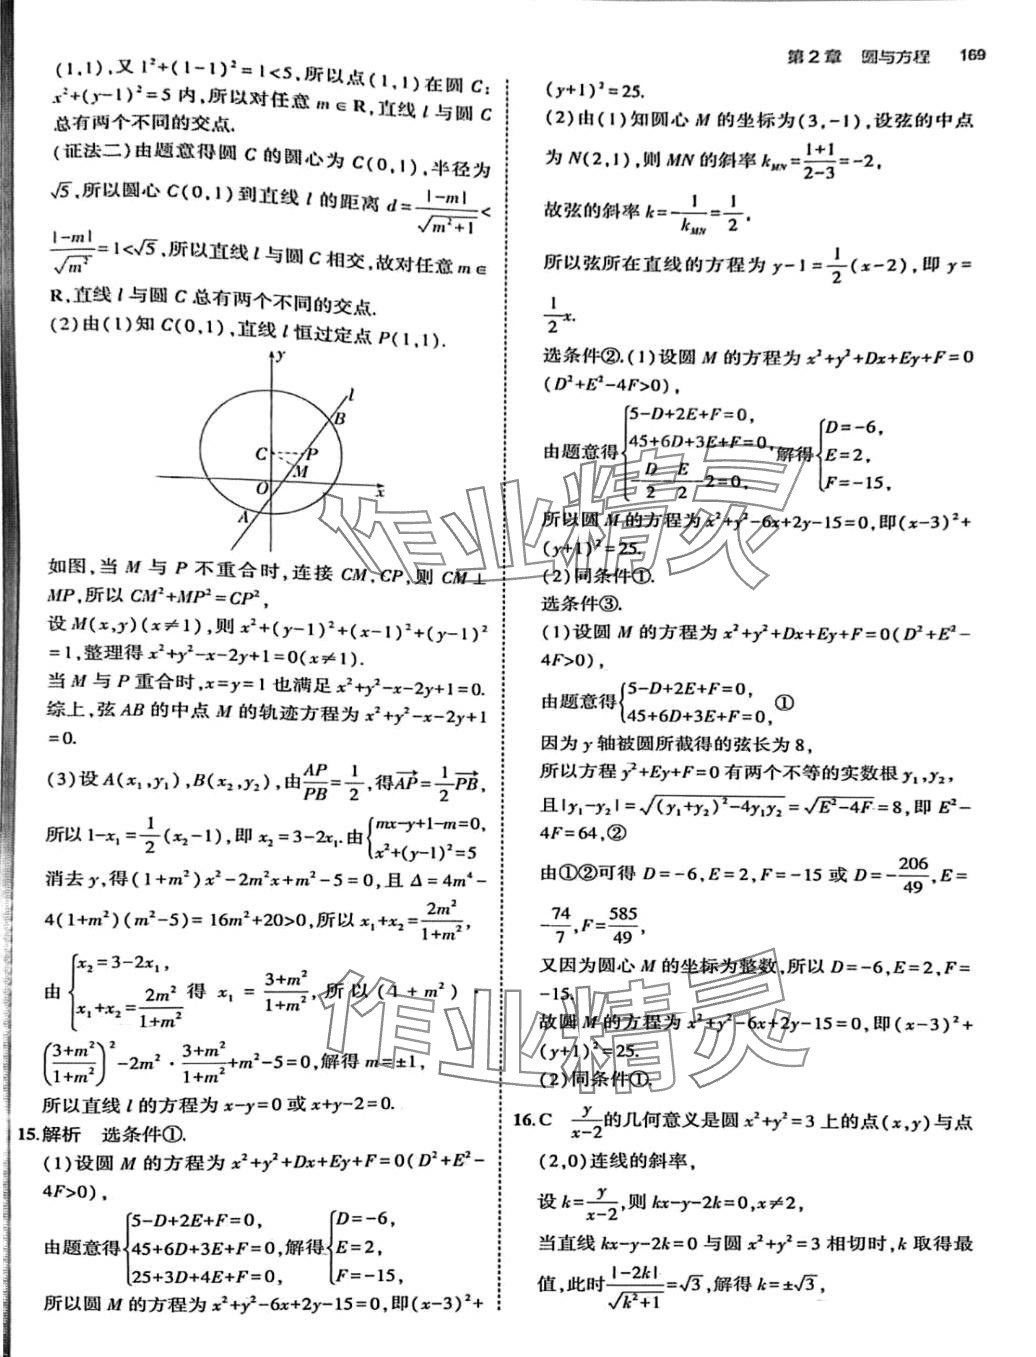 第2章 圆与方程 169
(1,1),又1²+(1-1)²=1<5,所以点(1,1)在圆C:
x²+(y-1)²=5内,所以对任意m∈R,直线l与圆C
总有两个不同的交点.
(证法二)由题意得圆C的圆心为C(0,1),半径为
√5,所以圆心C(0,1)到直线l的距离d=|-m|/√(m²+1)<
|-m|/√(m²)=1<√5,所以直线l与圆C相交,故对任意m∈
R,直线l与圆C总有两个不同的交点.
(2)由(1)知C(0,1),直线l恒过定点P(1,1).
y
l
B
C
P
M
O
x
A
如图,当M与P不重合时,连接CM,CP,则CM⊥
MP,所以CM²+MP²=CP²,
设M(x,y)(x≠1),则x²+(y-1)²+(x-1)²+(y-1)²
=1,整理得x²+y²-x-2y+1=0(x≠1).
当M与P重合时,x=y=1也满足x²+y²-x-2y+1=0.
综上,弦AB的中点M的轨迹方程为x²+y²-x-2y+1
=0.
(3)设A(x₁,y₁),B(x₂,y₂),由AP/PB=1/2,得AP→=1/2 PB→,
所以1-x₁=1/2(x₂-1),即x₂=3-2x₁.由{mx-y+1-m=0,
x²+(y-1)²=5
消去y,得(1+m²)x²-2m²x+m²-5=0,且Δ=4m⁴-
4(1+m²)(m²-5)=16m²+20>0,所以x₁+x₂=2m²/(1+m²),
由{x₂=3-2x₁,
x₁+x₂=2m²/(1+m²) 得x₁=(3+m²)/(1+m²),所以(1+m²)·
((3+m²)/(1+m²))²-2m²·(3+m²)/(1+m²)+m²-5=0,解得m=±1,
所以直线l的方程为x-y=0或x+y-2=0.
15.解析 选条件①.
(1)设圆M的方程为x²+y²+Dx+Ey+F=0(D²+E²-
4F>0),
由题意得{5-D+2E+F=0,
45+6D+3E+F=0,
25+3D+4E+F=0,
解得{D=-6,
E=2,
F=-15,
所以圆M的方程为x²+y²-6x+2y-15=0,即(x-3)²+
(y+1)²=25.
(2)由(1)知圆心M的坐标为(3,-1),设弦的中点
为N(2,1),则MN的斜率k_MN=(1+1)/(2-3)=-2,
故弦的斜率k=-1/k_MN=1/2,
所以弦所在直线的方程为y-1=1/2(x-2),即y=
1/2 x.
选条件②.(1)设圆M的方程为x²+y²+Dx+Ey+F=0
(D²+E²-4F>0),
由题意得{5-D+2E+F=0,
45+6D+3E+F=0,
-D/2-E/2-2=0,
解得{D=-6,
E=2,
F=-15,
所以圆M的方程为x²+y²-6x+2y-15=0,即(x-3)²+
(y+1)²=25.
(2)同条件①.
选条件③.
(1)设圆M的方程为x²+y²+Dx+Ey+F=0(D²+E²-
4F>0),
由题意得{5-D+2E+F=0,
45+6D+3E+F=0, ①
因为y轴被圆所截得的弦长为8,
所以方程y²+Ey+F=0有两个不等的实数根y₁,y₂,
且|y₁-y₂|=√((y₁+y₂)²-4y₁y₂)=√(E²-4F)=8,即E²-
4F=64,②
由①②可得D=-6,E=2,F=-15或D=-206/49,E=
-74/7,F=585/49,
又因为圆心M的坐标为整数,所以D=-6,E=2,F=
-15.
故圆M的方程为x²+y²-6x+2y-15=0,即(x-3)²+
(y+1)²=25.
(2)同条件①.
16.C y/(x-2)的几何意义是圆x²+y²=3上的点(x,y)与点
(2,0)连线的斜率,
设k=y/(x-2),则kx-y-2k=0,x≠2,
当直线kx-y-2k=0与圆x²+y²=3相切时,k取得最
值,此时|-2k|/√(k²+1)=√3,解得k=±√3,
作业精灵
作业精灵